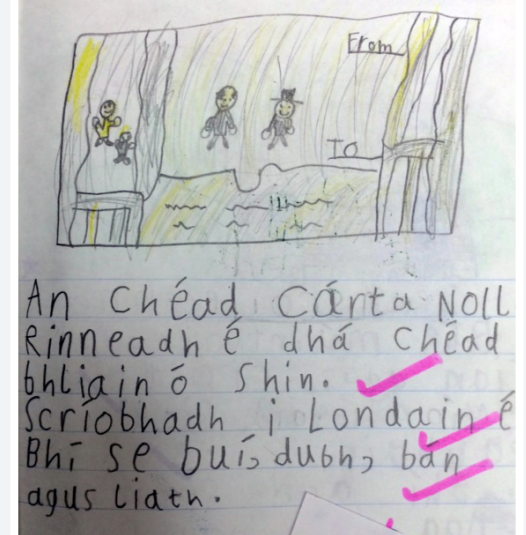 From
TO
An Chéad Cárta Noll
Rinneadh é dhá chéad
bhliain ó shin.
Scríobhadh i Londain é
Bhí se buí, dubh, bán
agus liath.